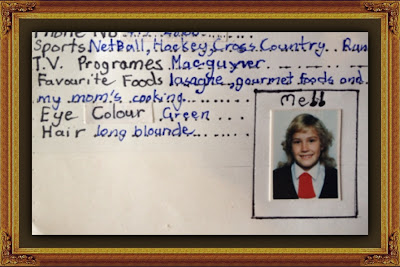 Phone No
Sports NetBall, Hockey, Cross Country.. Run
T.V. Programes Mac.guyver..........
Favourite Foods lasagne, gourmet foods and
my mom's cooking........
Eye Colour Green....
Hair long blounde.......
Mell